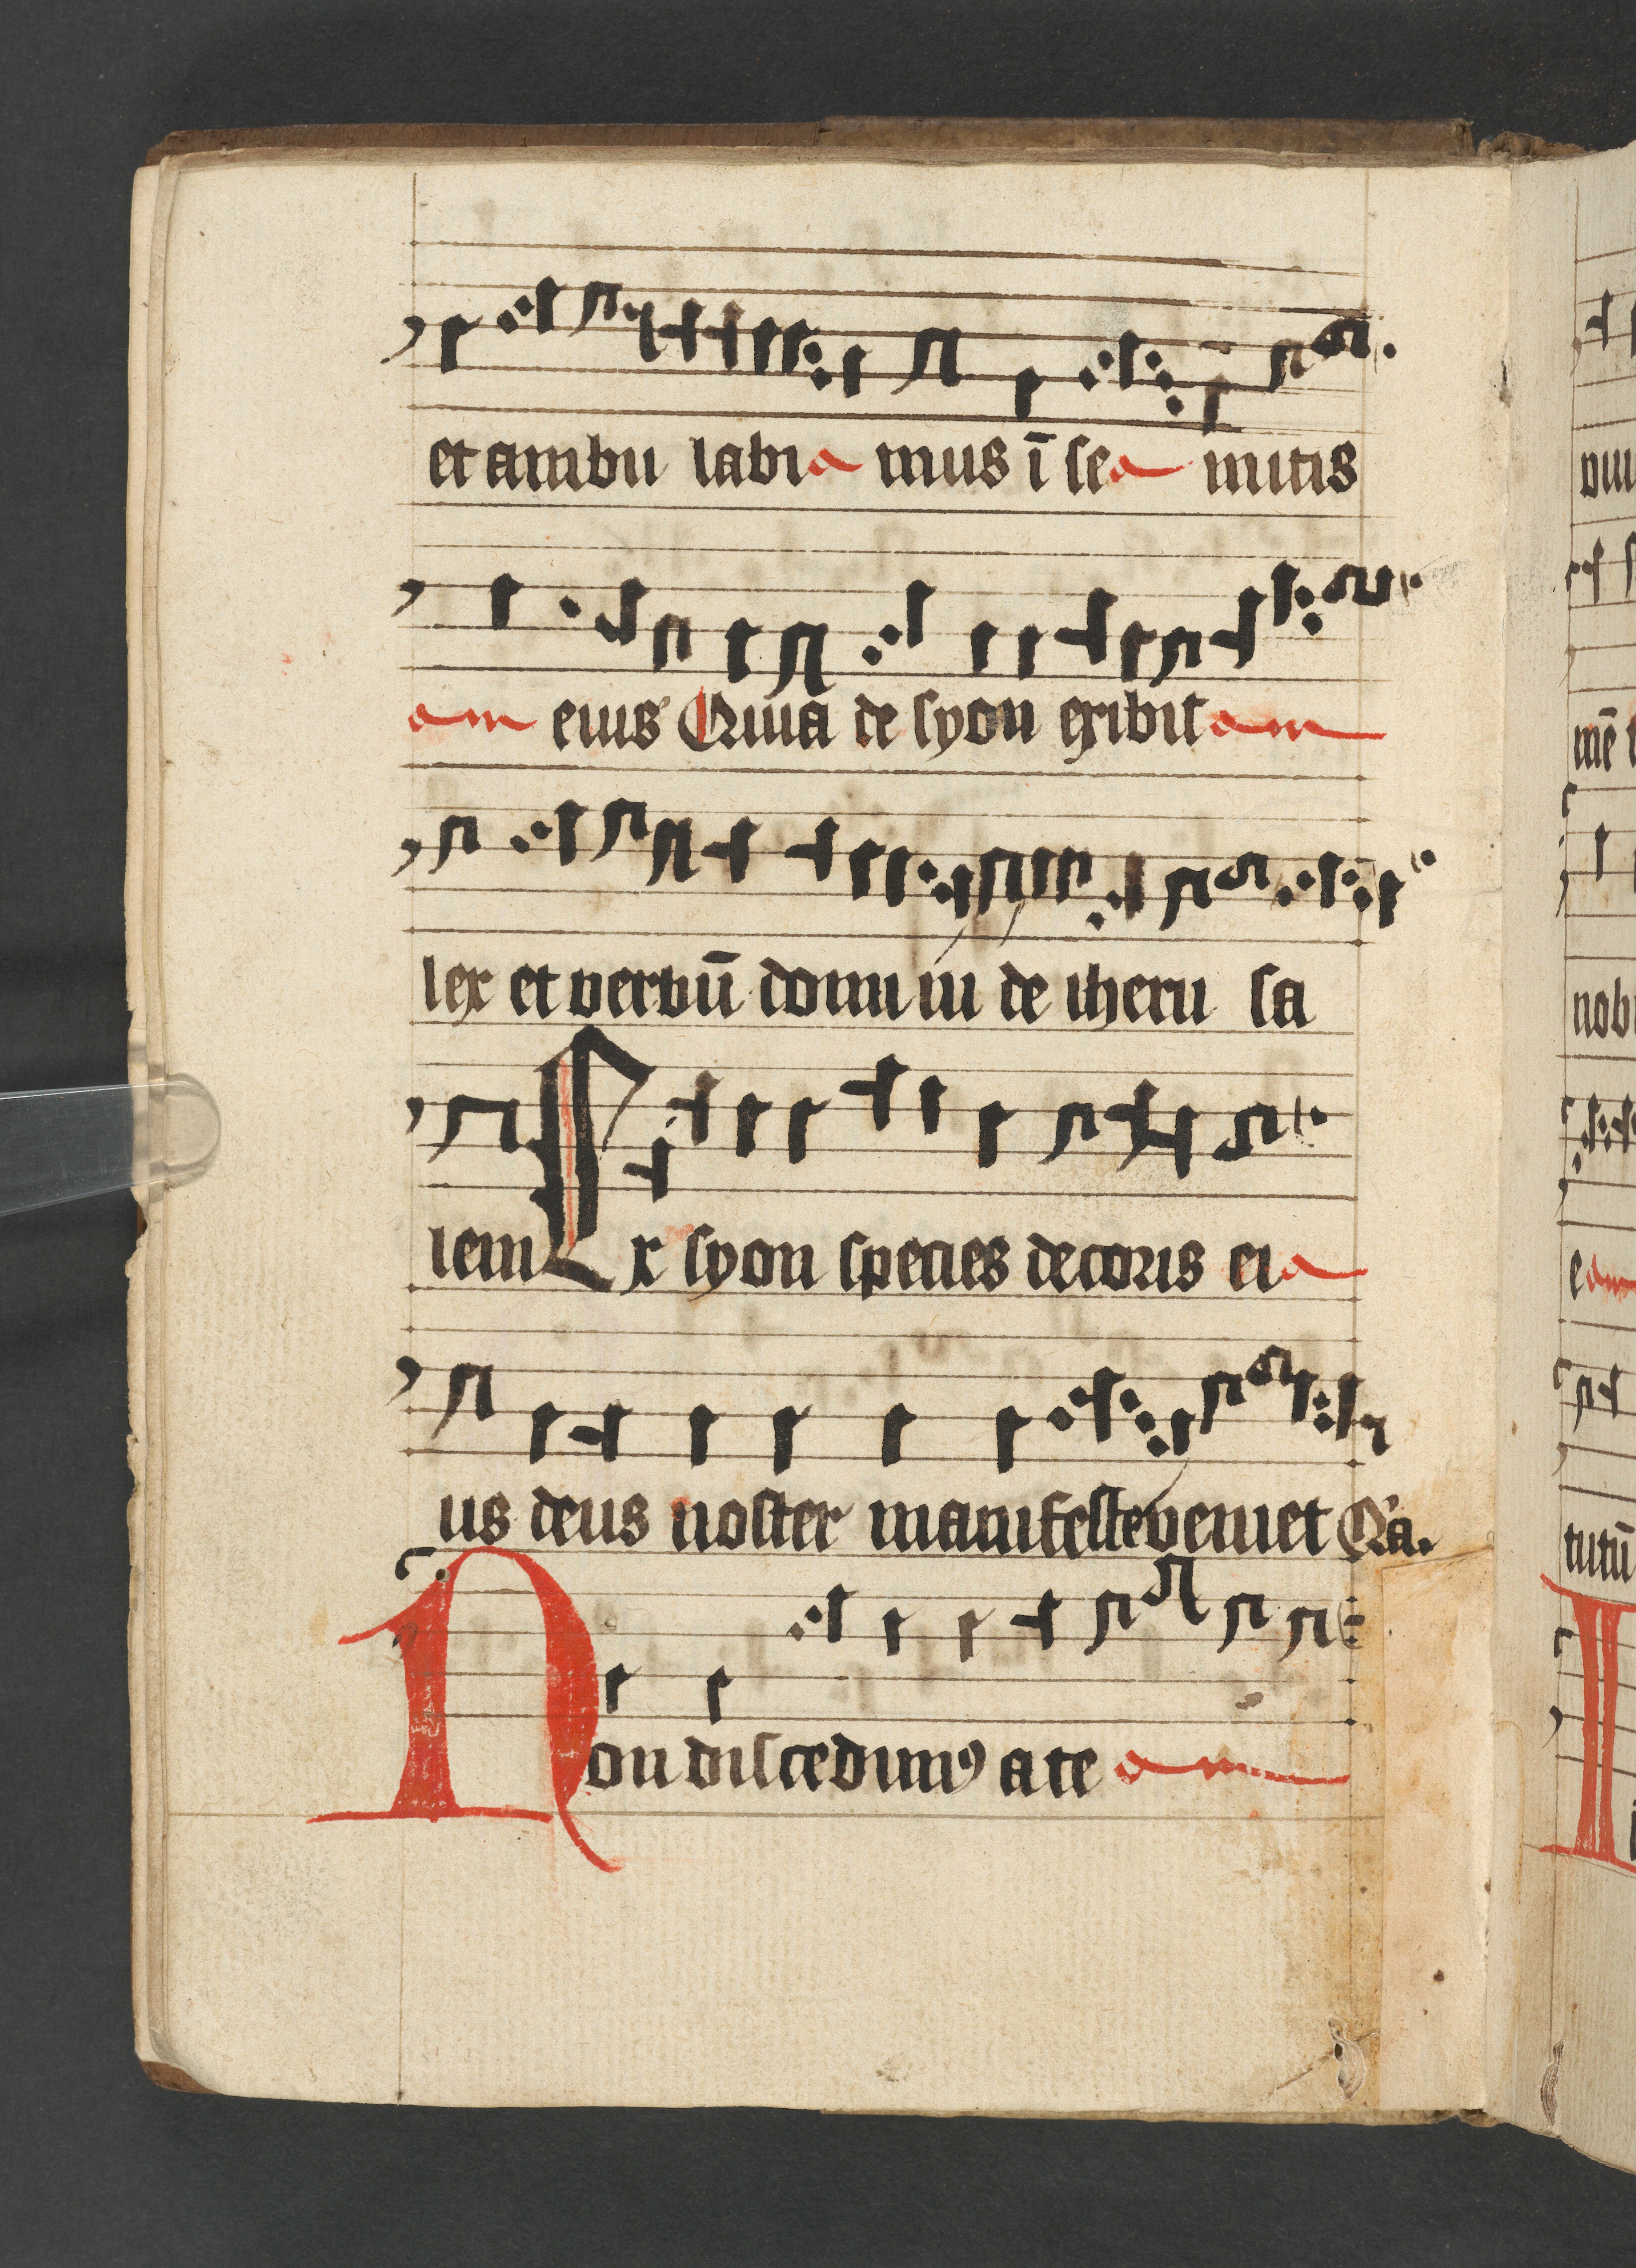 et ambu labia mus ī sea mitis
am eius Quia de syon exibit am
lex et verbū domi ni de iheru sa
lem Ex syon species decoris ei a
us deus noster manifeste veniet Qa.
Non discedimꝰ a te am
viii
mē
nobi
e am
tutū